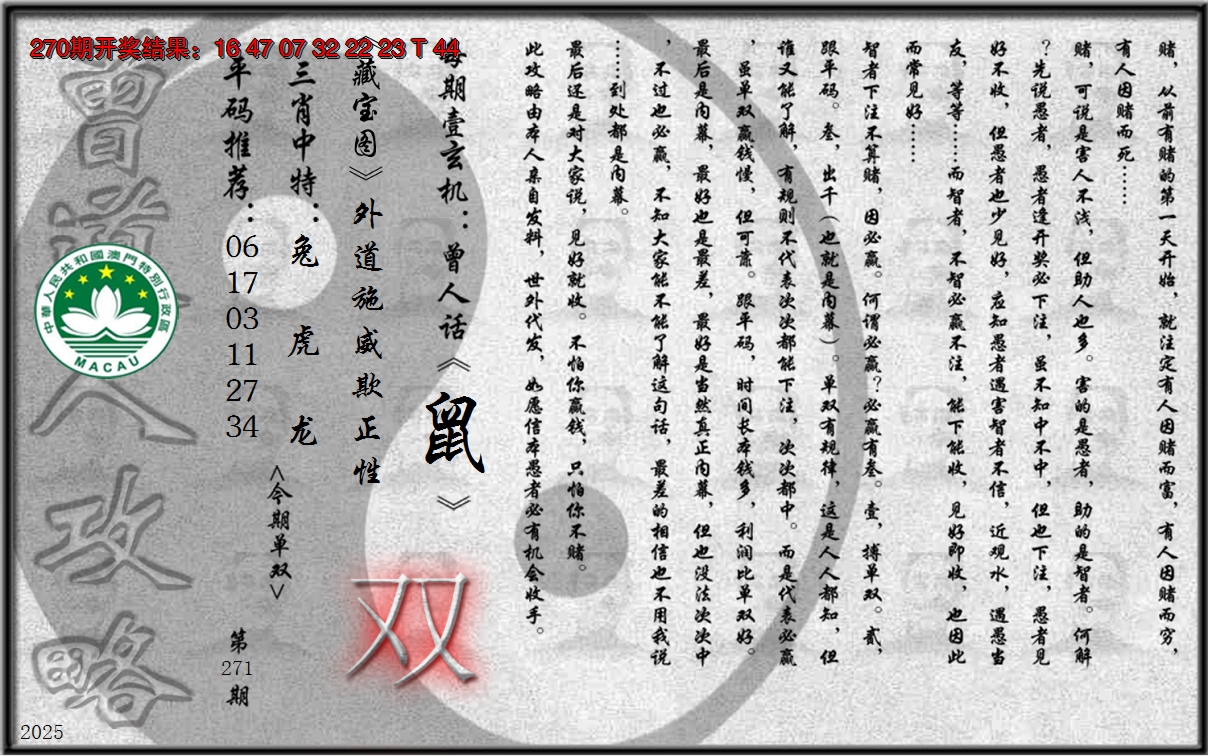 270期开奖结果：16 47 07 32 22 23 T 44
赌，从前有赌的第一天开始，就注定有人因赌而富，有人因赌而穷，
有人因赌而死……
赌，可说是害人不浅，但助人也多。害的是愚者，助的是智者。何解
？先说愚者，愚者逢开奖必下注，虽不知中不中，但也下注，愚者见
好不收，但愚者也少见好，应知愚者遇害智者不信，近观水，遇愚当
友，等等……而智者，不智必赢不注，能下能收，见好即收，也因此
而常见好……
智者下注不算赌，因必赢。何谓必赢？必赢有叁。壹，搏单双。贰，
跟平码。叁，出千（也就是内幕）。单双有规律，这是人人都知，但
谁又能了解，有规则不代表次次都能下注，次次都中。而是代表必赢
，虽单双赢钱慢，但可靠。跟平码，时间长本钱多，利润比单双好。
最后是内幕，最好也是最差，最好是当然真正内幕，但也没法次次中
，不过也必赢，不知大家能不能了解这句话，最差的相信也不用我说
……到处都是内幕。
最后还是对大家说，见好就收。不怕你赢钱，只怕你不赌。
此攻略由本人亲自发料，世外代发，如愿信本愚者必有机会收手。
每期壹玄机：曾人话《鼠》
双
《藏宝图》外道施威欺正性
三肖中特：兔 虎 龙
<今期单双>
平码推荐：
06
17
03
11
27
34
第
271
期
曾道人攻略
中華人民共和國澳門特別行政區
MACAU
2025